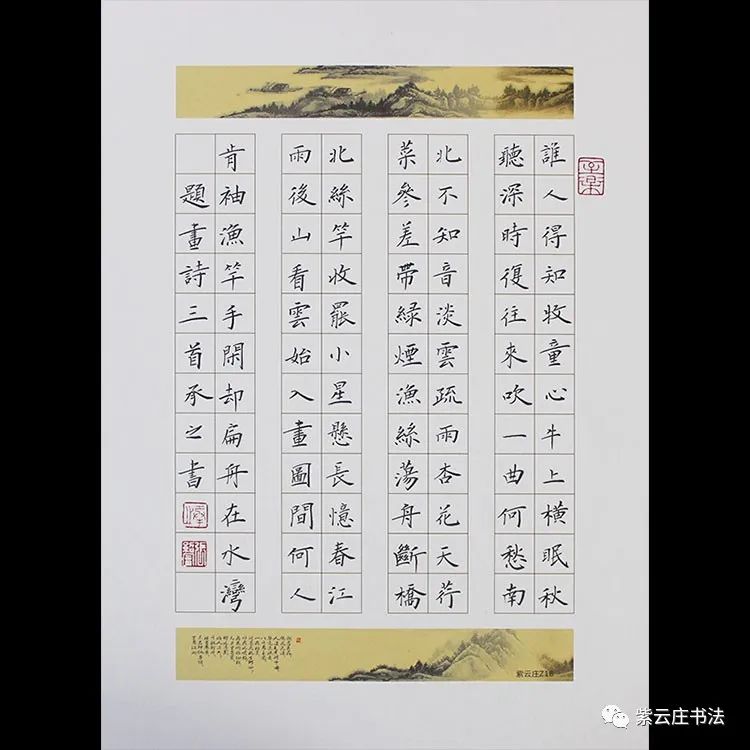 誰人得知牧童心牛上横眠秋
聽深時復往來吹一曲何愁南
北不知音淡雲疏雨杏花天荇
菜參差帶緑煙漁絲蕩舟斷橋
北絲竿收罷小星懸長憶春江
雨後山看雲始入畫圖間何人
肯袖漁竿手閑却扁舟在水灣
題畫詩三首承之書
紫云庄Z16
紫云庄书法